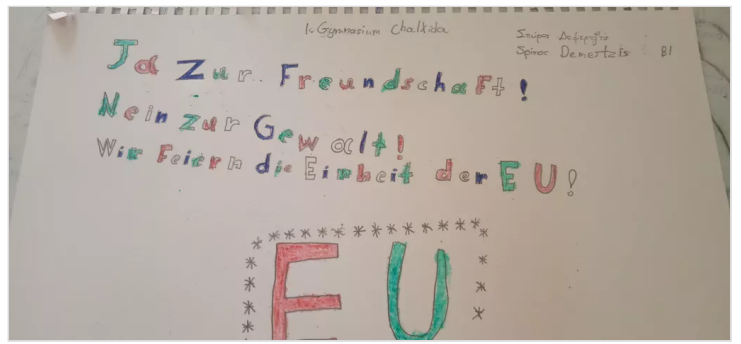 1. Gymnasium Chalkida
Spiros Demertzis B1
Ja Zur Freundschaft!
Nein zur Gewalt!
Wir Feiern die Einheit der EU!
EU